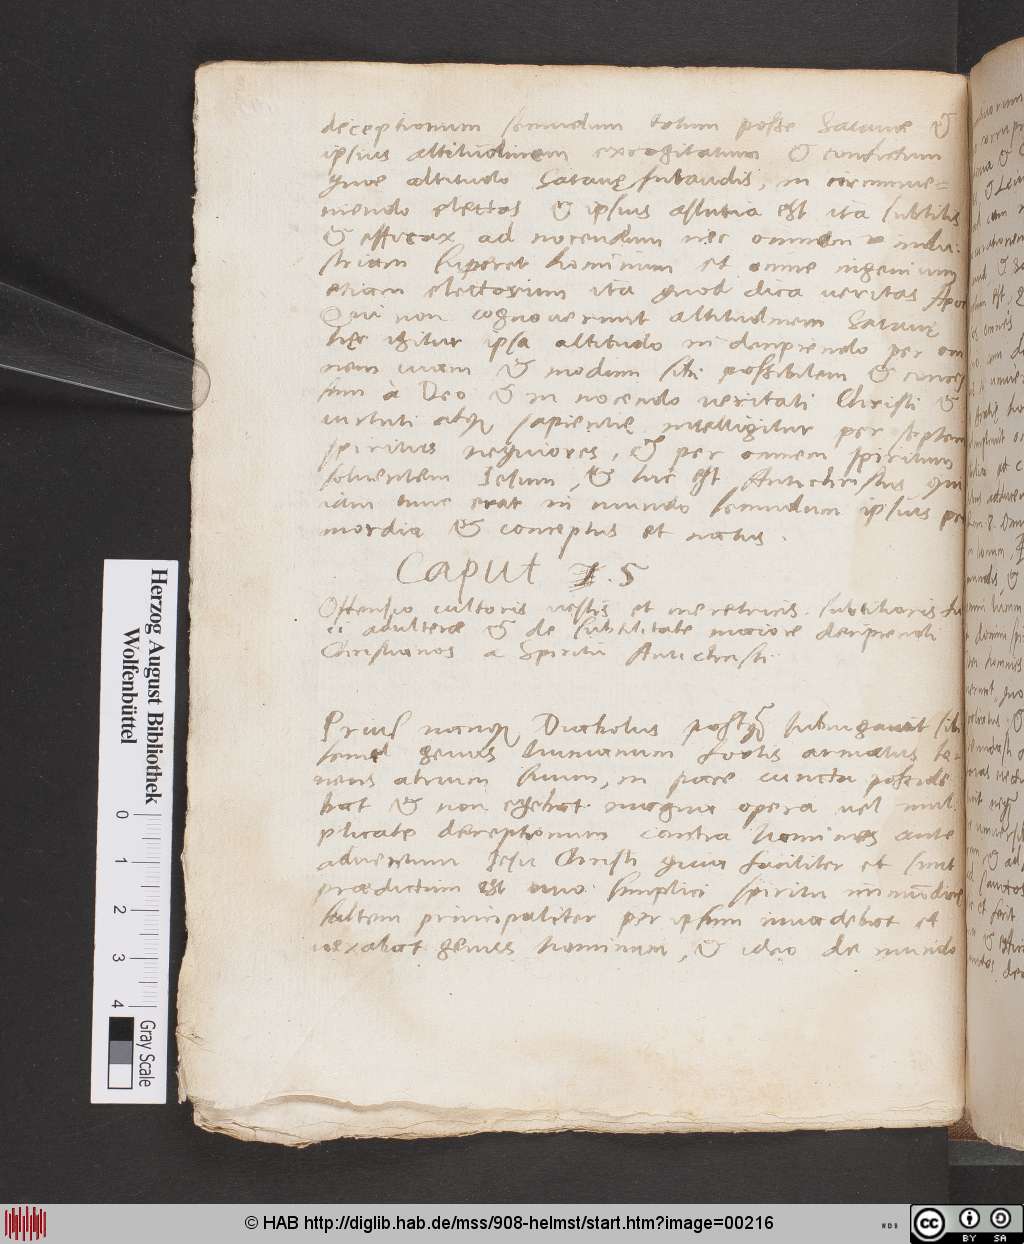 deceptionum secundum totum posse Satanæ &
ipsius altitudinem excogitatum & confictum
quæ altitudo Satanę subaudis, in circumue=
niendo electos & ipsius astutia est ita subtilis
& efficax ad nocendum nec omnem indu-
striam superet hominum et omne ingenium
etiam electorum ita quod dica veritas Apoc
Qui non cognouerunt altitudinem Satanę
hęc igitur ipsa altitudo in decipiendo per om
nem uiam & modum sibi possibilem & conces
sum à Deo & in nocendo veritati Christi &
uirtuti atque sapientię intelligitur per septem
spiritus nequiores, & per omnem spiritum
soluentem Iesum, & hic est Antichristus qui
iam tunc erat in mundo secundum ipsius pri
mordia & conceptus et natus.
Caput 1.5
Offensio cultoris uestis et meretricis. subtilioris
adulteræ & de subtilitate maiore decipiendi
Christianos a Spiritu Antichristi
Prius namque Diabolus postquam subiugauit sibi
semel genus humanum fortis armatus te-
nens atrium suum, in pace cuncta posside
bat & non egebat magna opera uel mul-
plicate deceptionum contra homines ante
aduentum Iesu Christi quin faciliter et sicut
prædictum est uno simplici spiritu immūdicię
saltem principaliter per ipsum inuadebat et
uexabat genus hominum, & ideo de mundo
Herzog August Bibliothek
Wolfenbüttel
0 1 2 3 4
Gray Scale
© HAB http://diglib.hab.de/mss/908-helmst/start.htm?image=00216
WDB
cc BY SA